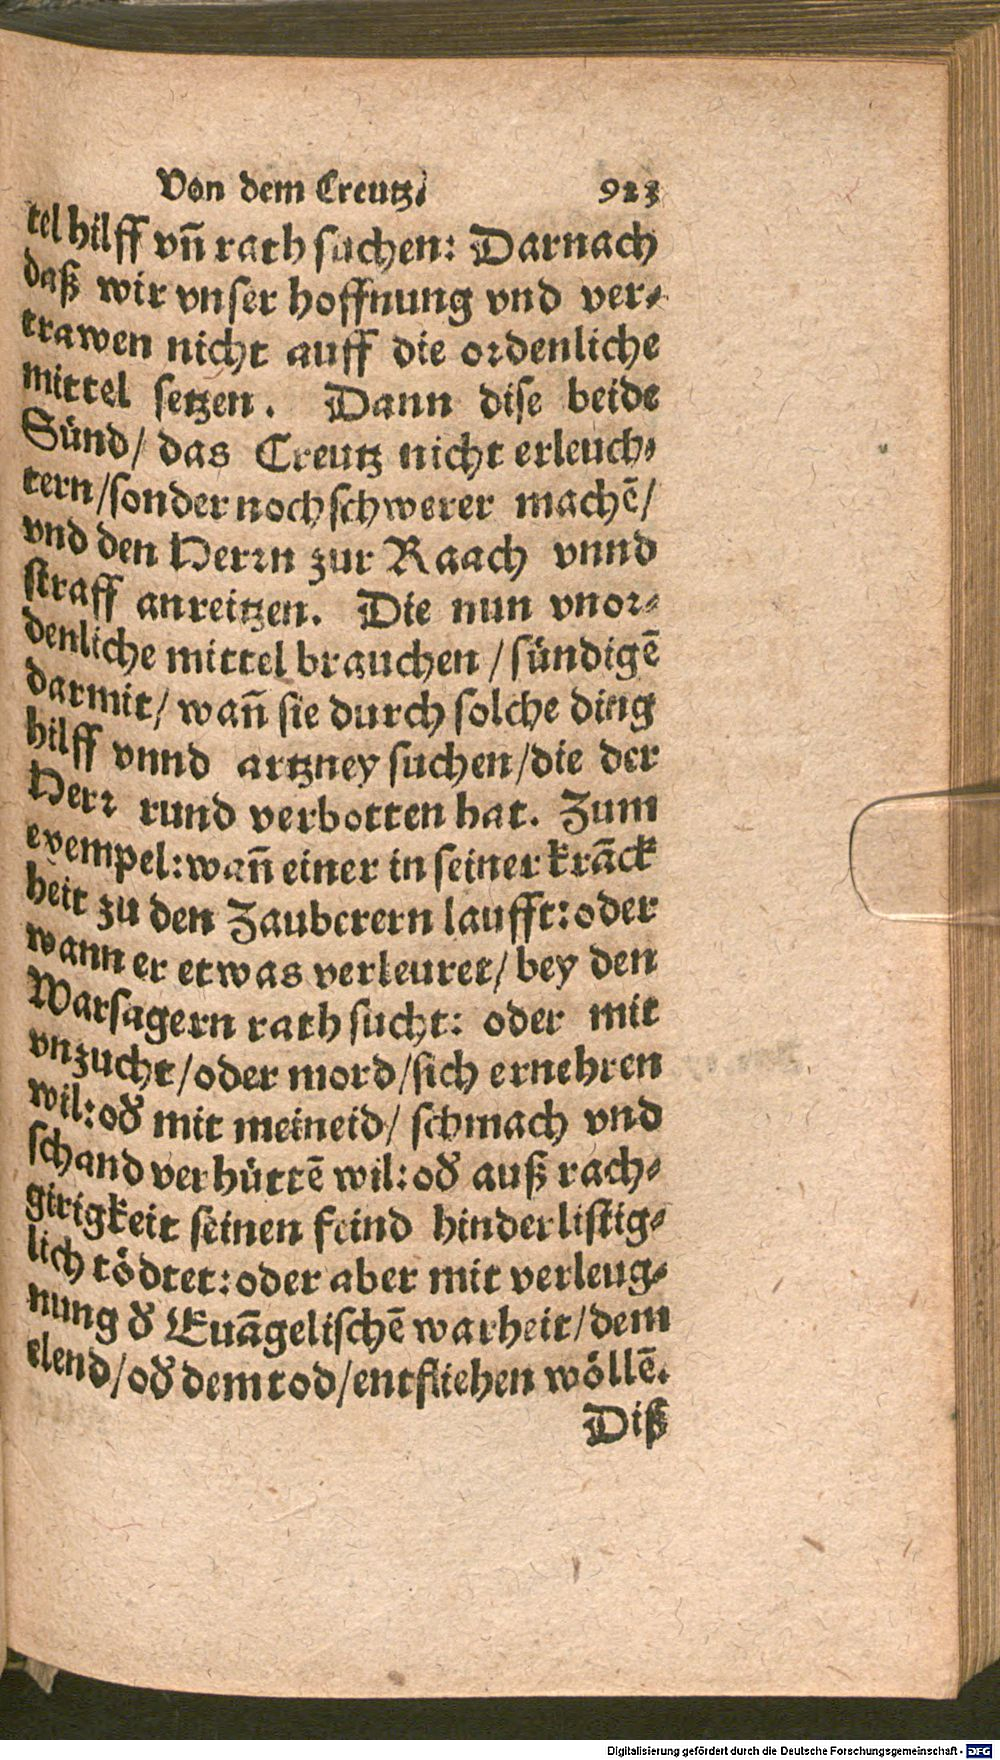 Von dem Creutz. 923
tel hilff vn̄ rath suchen: Darnach
daß wir vnser hoffnung vnd ver-
trawen nicht auff die ordenliche
mittel setzen. Dann dise beide
Sünd/ das Creutz nicht erleuch-
tern/sonder noch schwerer machē/
vnd den Herrn zur Raach vnnd
straff anreitzen. Die nun vnor-
denliche mittel brauchen/sündigē
darmit/ wañ sie durch solche ding
hilff vnnd artzney suchen/die der
Herr rund verbotten hat. Zum
exempel: wañ einer in seiner krāck
heit zu den Zauberern laufft: oder
wann er etwas verleuret/ bey den
Warsagern rath sucht: oder mit
vnzucht/oder mord/sich ernehren
wil: oď mit meineid/ schmach vnd
schand verhüttē wil: oď auß rach-
girigkeit seinen feind hinderlistig-
lich tödtet: oder aber mit verleug-
nung ď Euāgelischē warheit/dem
elend/oď dem tod/entfliehen wöllē.
Diß
Digitalisierung gefördert durch die Deutsche Forschungsgemeinschaft - DFG